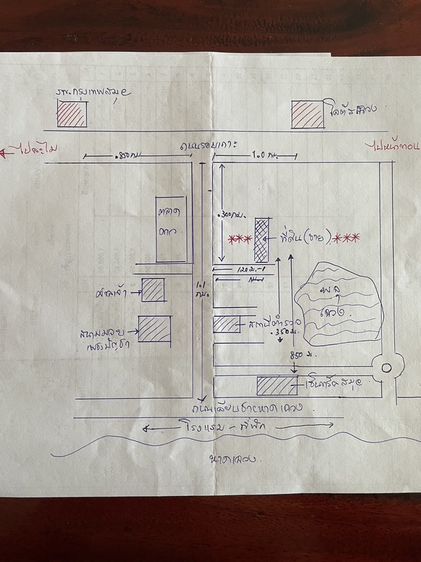 รพ.กรุงเทพสมุย
โลตัสเฉวง
ถนนรอบเกาะ
ไปละไม
ไปหน้าทอน
.850 กม.
1.0 กม.
ตลาด
.300 กม.
*** ที่ดิน (ขาย) ***
120 ม.
ศาลเจ้า
1.1
กม.
สนามมวย
เพชรบัญชา
สถานีตำรวจ
.350 ม.
พลุ
เฉวง
850 ม.
เซ็นทรัลสมุย
ถนนเลียบชายหาดเฉวง
โรงแรม - ที่พัก
หาดเฉวง